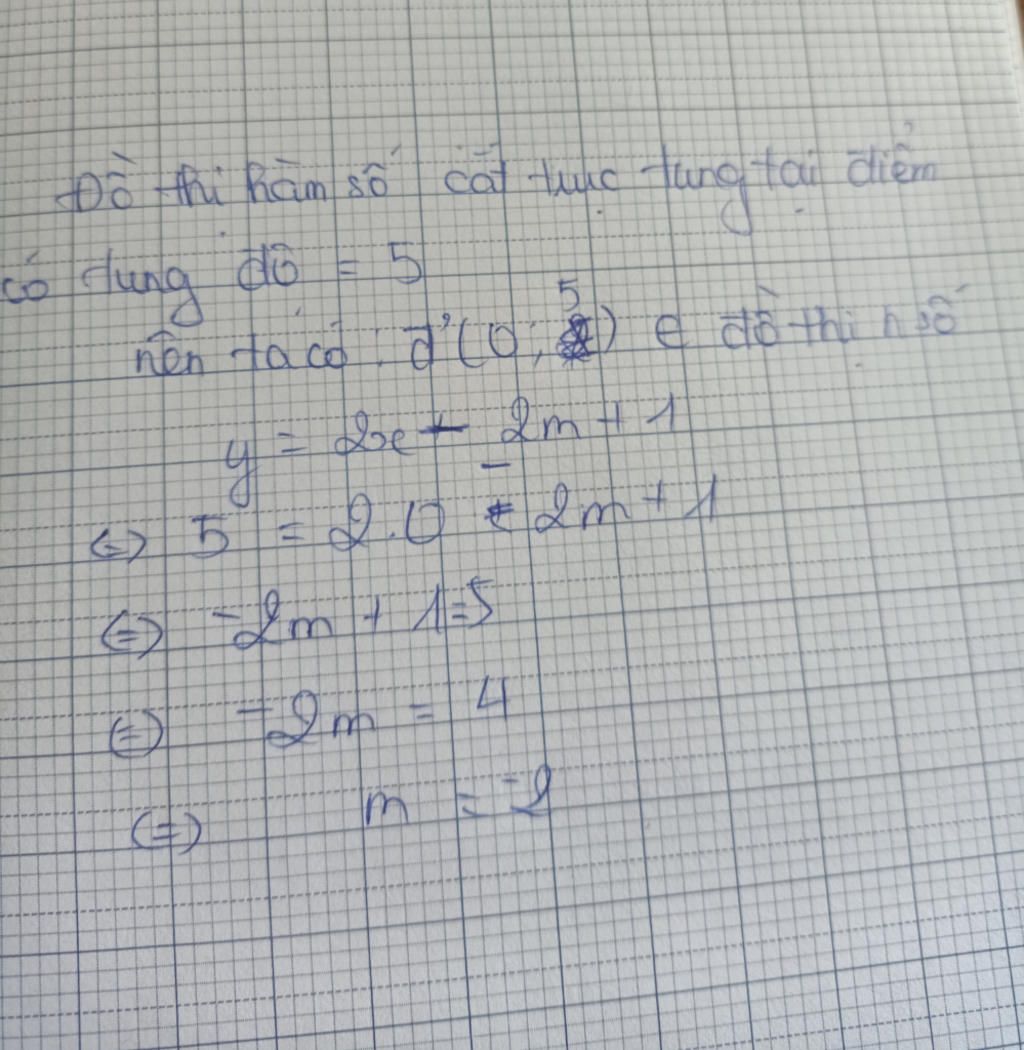 Đồ thị hàm số cắt trục tung tại điểm
có tung độ = 5
nên ta có đ'(0; 5) e đồ thị h số
y = 2x - 2m + 1
<=> 5 = 2.0 - 2m + 1
<=> -2m + 1 = 5
<=> -2m = 4
<=> m = -2